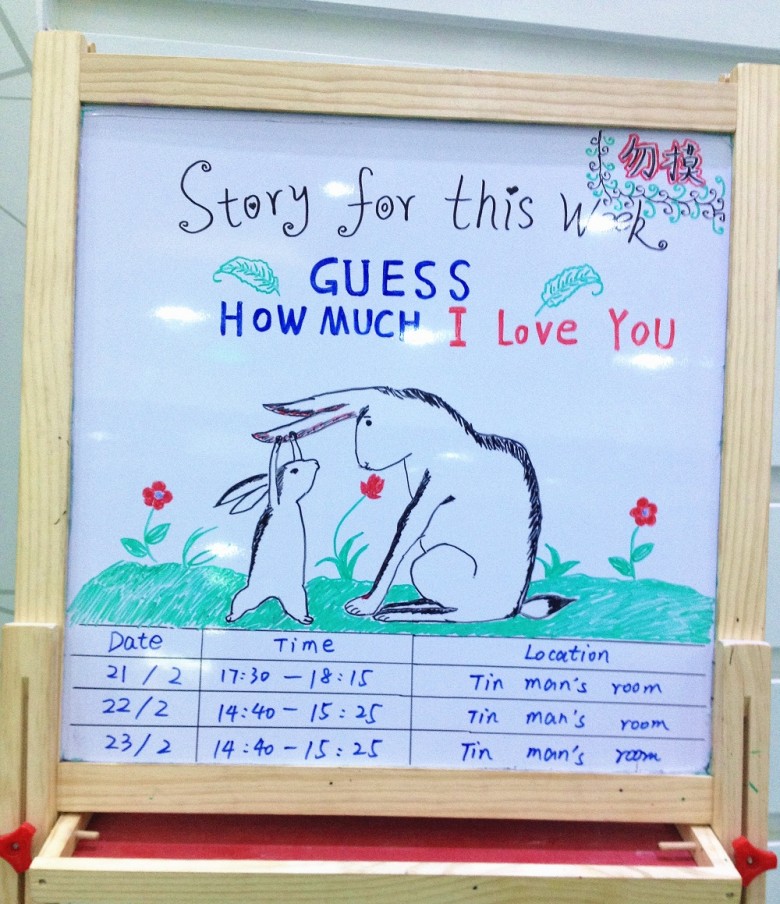 勿摸
Story for this Week
GUESS
HOW MUCH I Love YOU
Date Time Location
21 / 2 17:30 - 18:15 Tin man's room
22/2 14:40 - 15:25 Tin man's room
23/2 14:40 - 15:25 Tin man's room